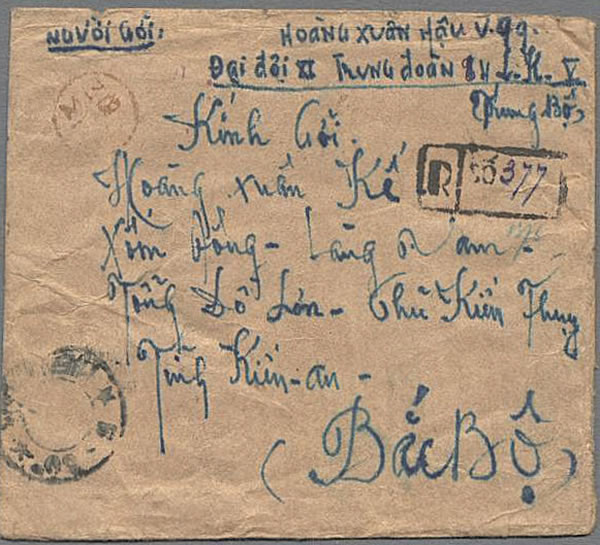 NGƯỜI GỞI:
HOÀNG XUÂN HẬU V.gg.
Đại đội II TRUNG ĐOÀN L.K. V
Trung Bộ
Kính Gởi.
R SỐ 377
Hoàng Xuân Kế
Xóm Đồng - Làng Nam -
Tổng Đồ Sơn - Phủ Kiến Thụy
Tỉnh Kiến-an -
(Bắc Bộ)